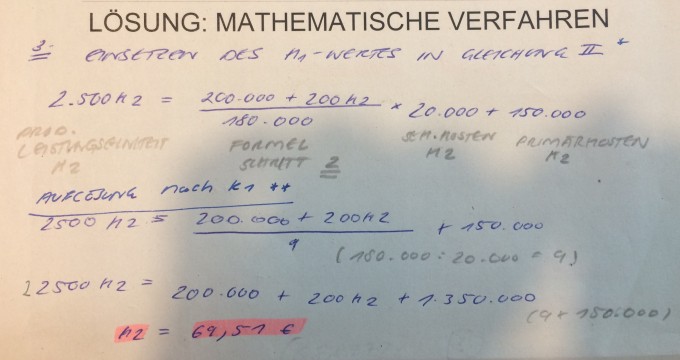 LÖSUNG: MATHEMATISCHE VERFAHREN
3. EINSETZEN DES K1-WERTES IN GLEICHUNG II *
2.500 K2 = 200.000 + 200 K2 / 180.000 * 20.000 + 150.000
PROD. LEISTUNGSEINHEIT K2 FORMEL SCHRITT 2 SEK. KOSTEN K2 PRIMÄRKOSTEN K2
AUFLÖSUNG nach K1 **
2500 K2 = 200.000 + 200 K2 / 9 + 150.000
(180.000 : 20.000 = 9)
22500 K2 = 200.000 + 200 K2 + 1.350.000
(9 * 150.000)
K2 = 69,51 €